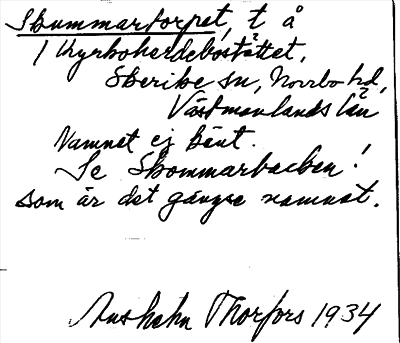 Skummartorpet, t å
/ Kyrkoherdebostället,
Skerike sn, Norrbo hd,
Västmanlands län
Namnet ej känt.
Se Skommarbacken!
som är det gängse namnet.
Thorfors 1934